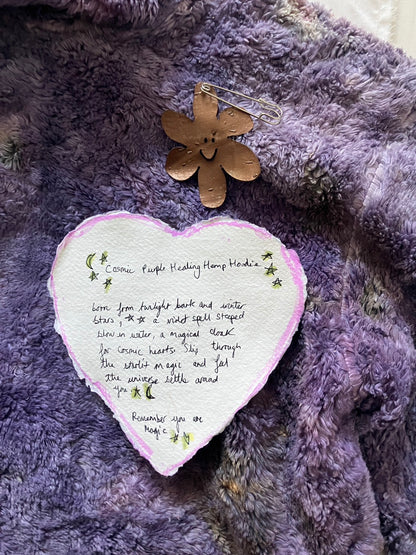 Cosmic Purple Healing Hemp Hoodie
born from twilight bark and winter
stars, a violet spell steeped
slow in water, a magical cloak
for cosmic hearts. Slip through
the violet magic and feel
the universe settle around
you
Remember you are
Magic